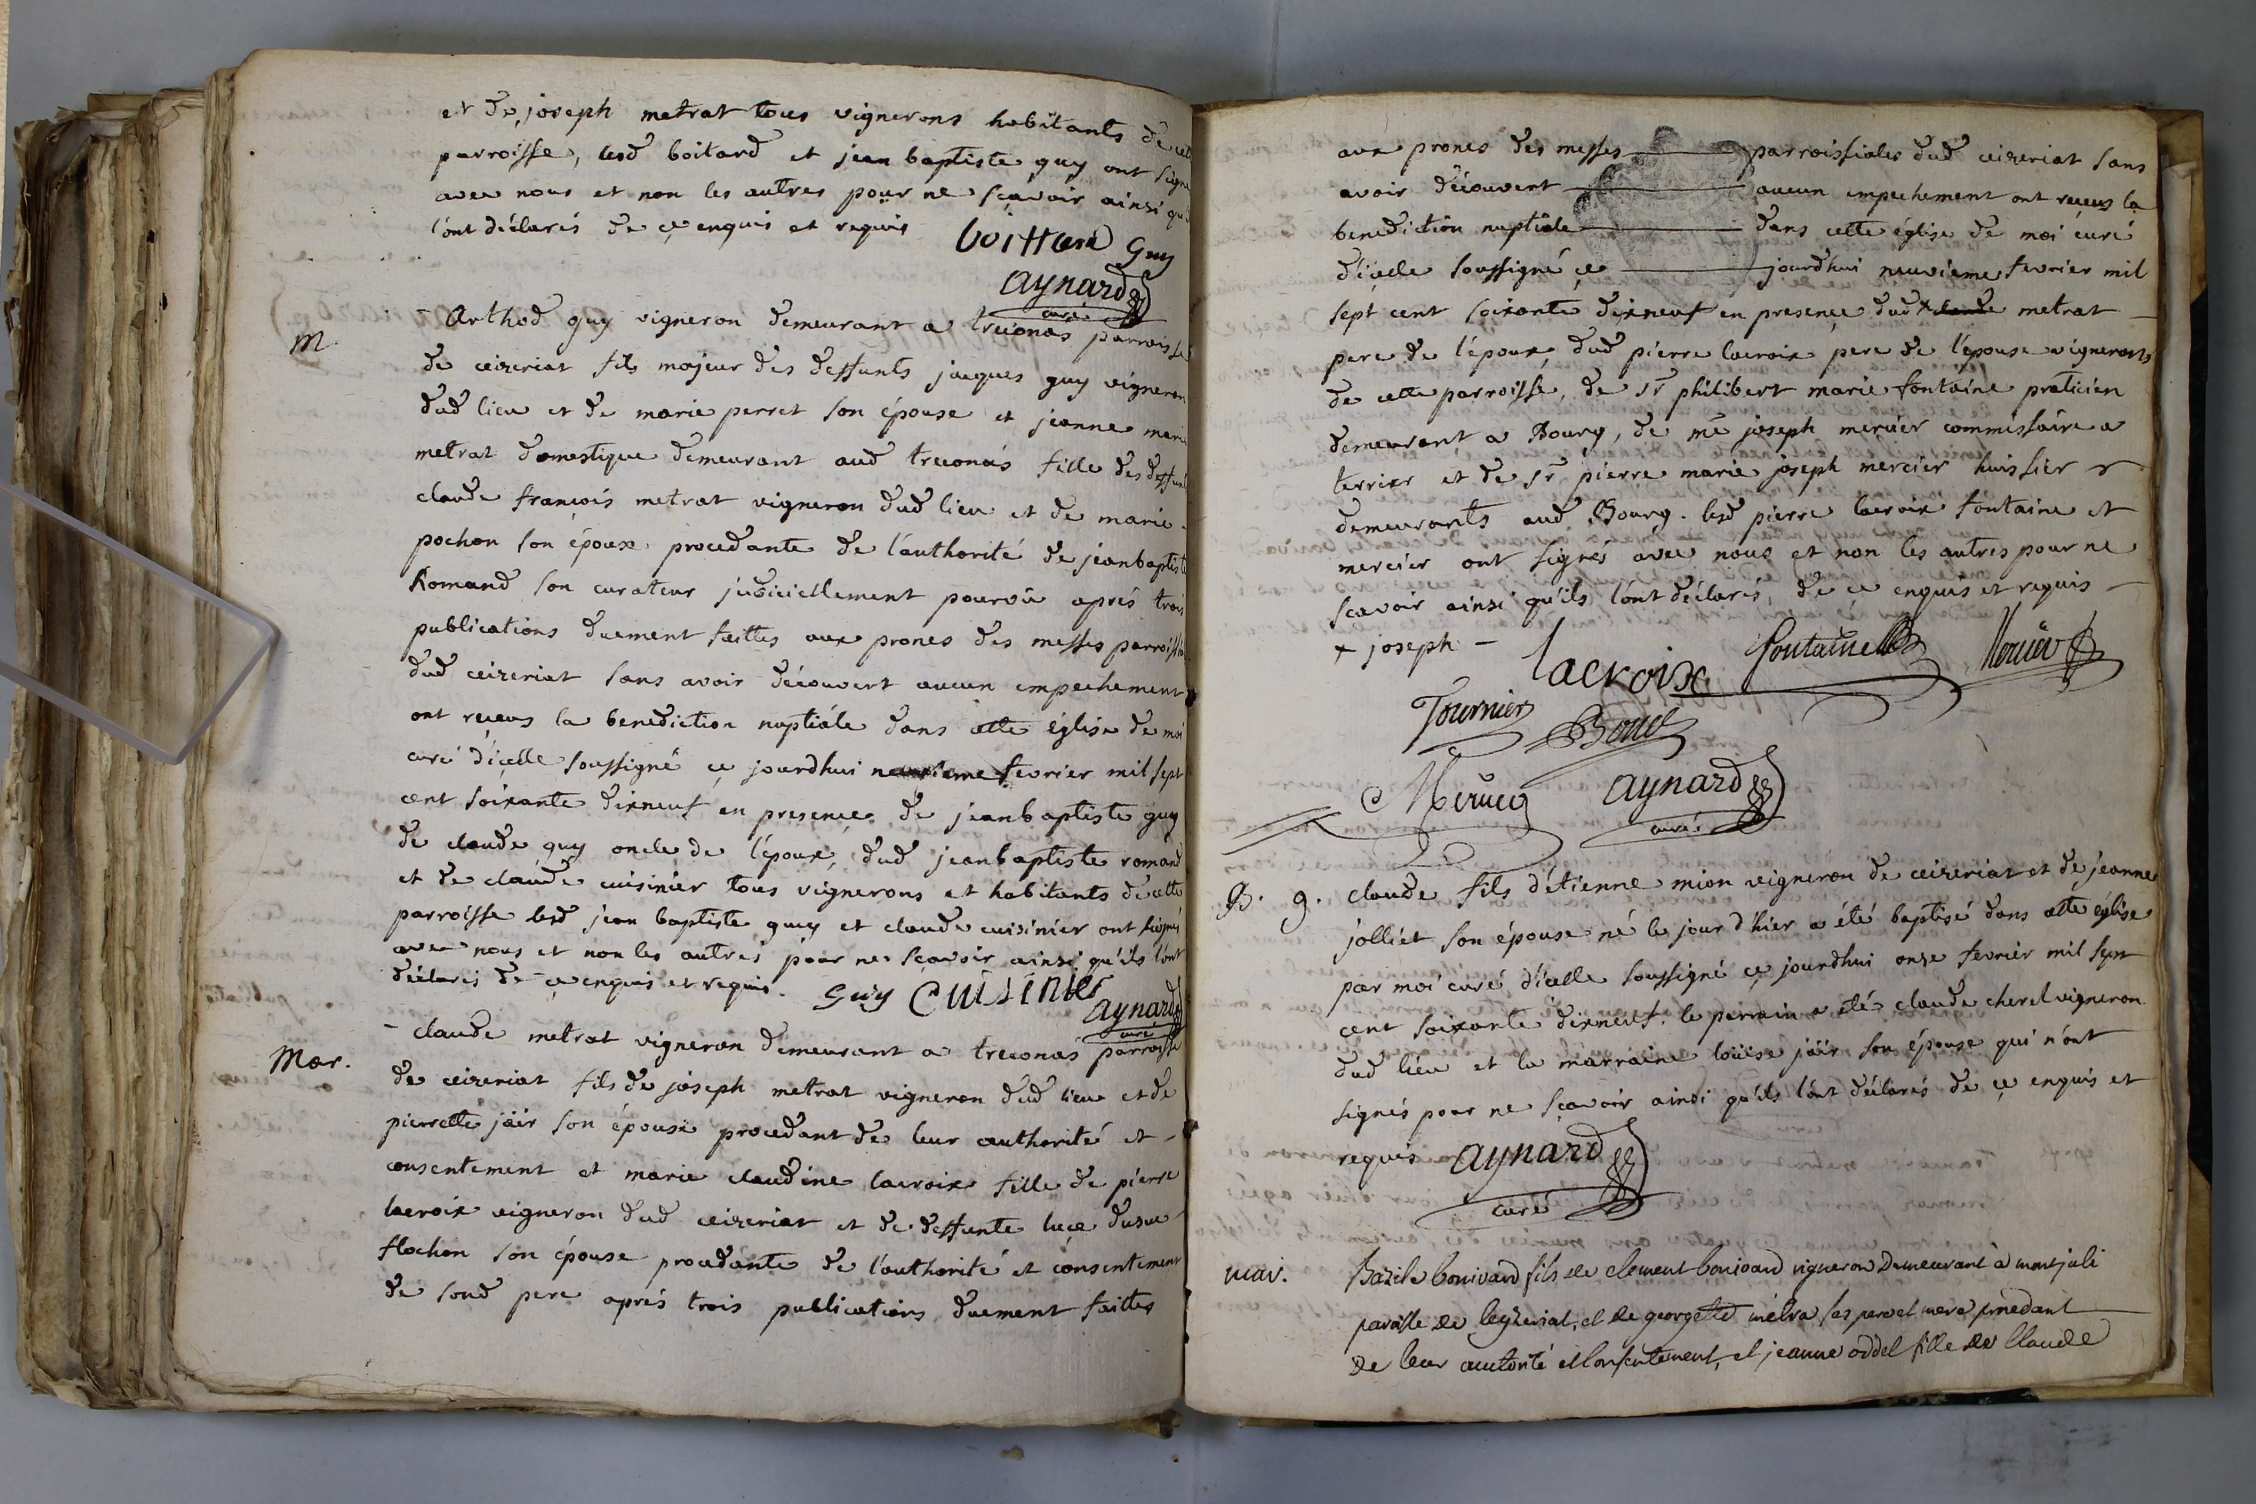 et de joseph metrat tous vignerons habitants de cette
parroisse, lesd boitard et jean baptiste guy ont signé
avec nous et non les autres pour ne sçavoir ainsi qu'ils
l'ont déclarés de ce enquis et requis boittard Guy
aynard
curé
m. Arthod guy vigneron demeurant a treconas parroisse
de ceizeriat fils majeur des deffunts jacques guy vigneron
dud lieu et de marie perret son épouse et jeanne marie
metrat domestique demeurant aud treconas fille des deffunts
claude françois metrat vigneron dud lieu et de marie
pochon son épouse procedante de l'authorité de jeanbaptiste
Romand son curateur judiciellement pourvû aprés trois
publications duement faittes aux prones des messes parroissi
dud ceizeriat sans avoir découvert aucun empechement
ont reçeus la benediction nuptiale dans cette église de moi
curé d'icelle soussigné ce jourdhui neuvieme fevrier mil sept
cent soixante dixneuf en presence de jeanbaptiste guy
de claude guy oncle de l'époux, dud jeanbaptiste romand
et de claude cuisinier tous vignerons et habitants de cette
parroisse lesd jean baptiste guy et claude cuisinier ont signés
avec nous et non les autres pour ne sçavoir ainsi qu'ils l'ont
déclarés de ce enquis et requis. Guy Cuisinier
aynard
curé
Mar. claude metrat vigneron demeurant a treconas parroisse
de ceizeriat fils de joseph metrat vigneron dud lieu et de
pierrette jäir son épouse procedant de leur authorité et
consentement et marie claudine lacroix fille de pierre
lacroix vigneron dud ceizeriat et de deffunte luce
flochon son épouse procedante de l'authorité et consentement
de sond pere aprés trois publications duement faittes
aux prones des messes parroissiales dud ceizeriat sans
avoir découvert aucun empechement ont reçeus la
benediction nuptiale dans cette église de moi curé
d'icelle soussigné ce jourdhui neuvieme fevrier mil
sept cent soixante dixneuf en presence dud + claude metrat
pere de l'époux, dud pierre lacroix pere de l'épouse vignerons
de cette parroisse, de sr philibert marie fontaine praticien
demeurant a Bourg, de me joseph mercier commissaire a
terrier et de sr pierre marie joseph mercier huissier
demeurants aud Bourg. lesd pierre lacroix fontaine et
mercier ont signés avec nous et non les autres pour ne
scavoir ainsi qu'ils l'ont déclarés, de ce enquis et requis
+ joseph lacroix fontaine Mercier
Tournier
Mercier aynard
curé
B. 9. claude fils d'étienne mion vigneron de ceizeriat et de jeanne
jolliet son épouse né le jour d'hier a été baptisé dans cette église
par moi curé d'icelle soussigné ce jourdhui onze fevrier mil sept
cent soixante dixneuf. le parrain a été claude cherel vigneron
dud lieu et la marraine loüise jäir son épouse qui n'ont
signés pour ne sçavoir ainsi qu'ils l'ont déclarés de ce enquis et
requis aynard
curé
mar. Bazile bonivard fils de clement bonivard vigneron demeurant à montjuli
paroisse de Ceyzeriat, et de georgette métra ses pere et mere procedant
de leur autorité et consentement, et jeanne oddet fille de Claude